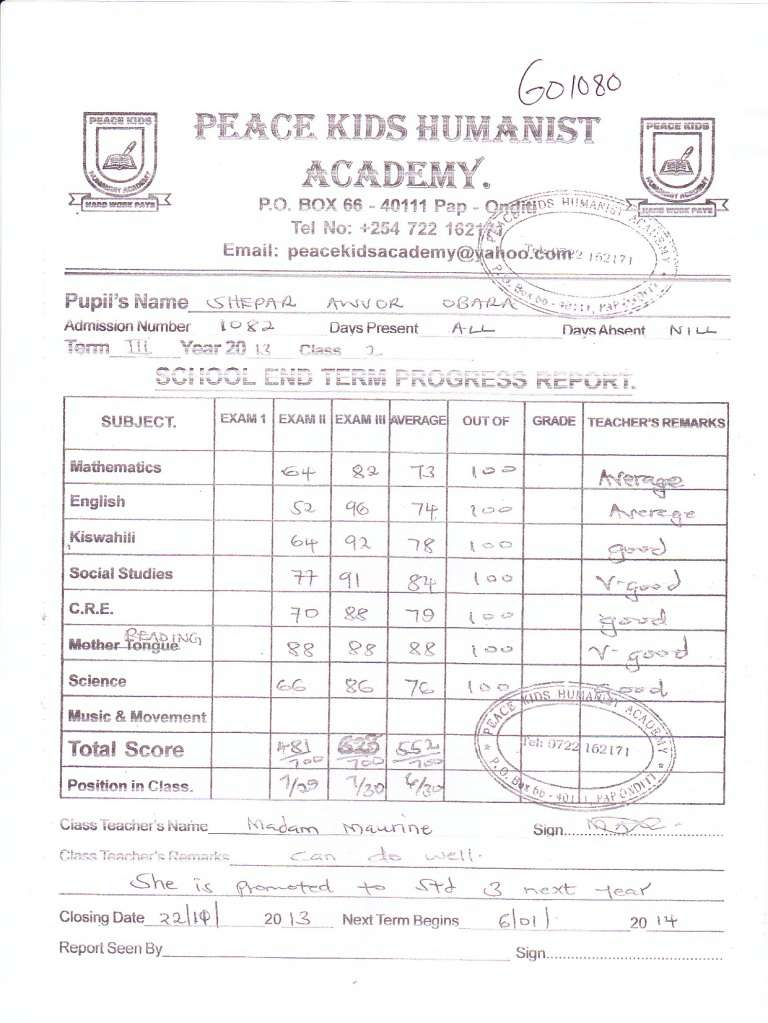 GO1080
PEACE KIDS
HUMANIST ACADEMY
HARD WORK PAYS
PEACE KIDS HUMANIST
ACADEMY.
PEACE KIDS
HUMANIST ACADEMY
HARD WORK PAYS
P.O. BOX 66 - 40111 Pap - Onditi
Tel No: +254 722 162171
Email: peacekidsacademy@yahoo.com
PEACE KIDS HUMANIST ACADEMY
Tel: 0722 162171
P.O. Box 66 - 40111, PAP ONDITI
Pupil's Name SHEPAR AWUOR OBARA
Admission Number 1082 Days Present ALL Days Absent NILL
Term III Year 20 13 Class 2
SCHOOL END TERM PROGRESS REPORT.
SUBJECT. EXAM 1 EXAM II EXAM III AVERAGE OUT OF GRADE TEACHER'S REMARKS
Mathematics 64 82 73 100 Average
English 52 96 74 100 Average
Kiswahili 64 92 78 100 good
Social Studies 77 91 84 100 V-good
C.R.E. 70 88 79 100 good
READING
Mother Tongue 88 88 88 100 V- good
Science 66 86 76 100 Good
Music & Movement
Total Score 481/700 623/700 552/700
Position in Class. 7/29 7/30 6/30
PEACE KIDS HUMANIST ACADEMY
Tel: 0722 162171
P.O. Box 66 - 40111, PAP ONDITI
Class Teacher's Name Madam Maurine Sign
Class Teacher's Remarks Can do well.
She is promoted to Std 3 next year
Closing Date 22/11/ 20 13 Next Term Begins 6/01/ 20 14
Report Seen By Sign